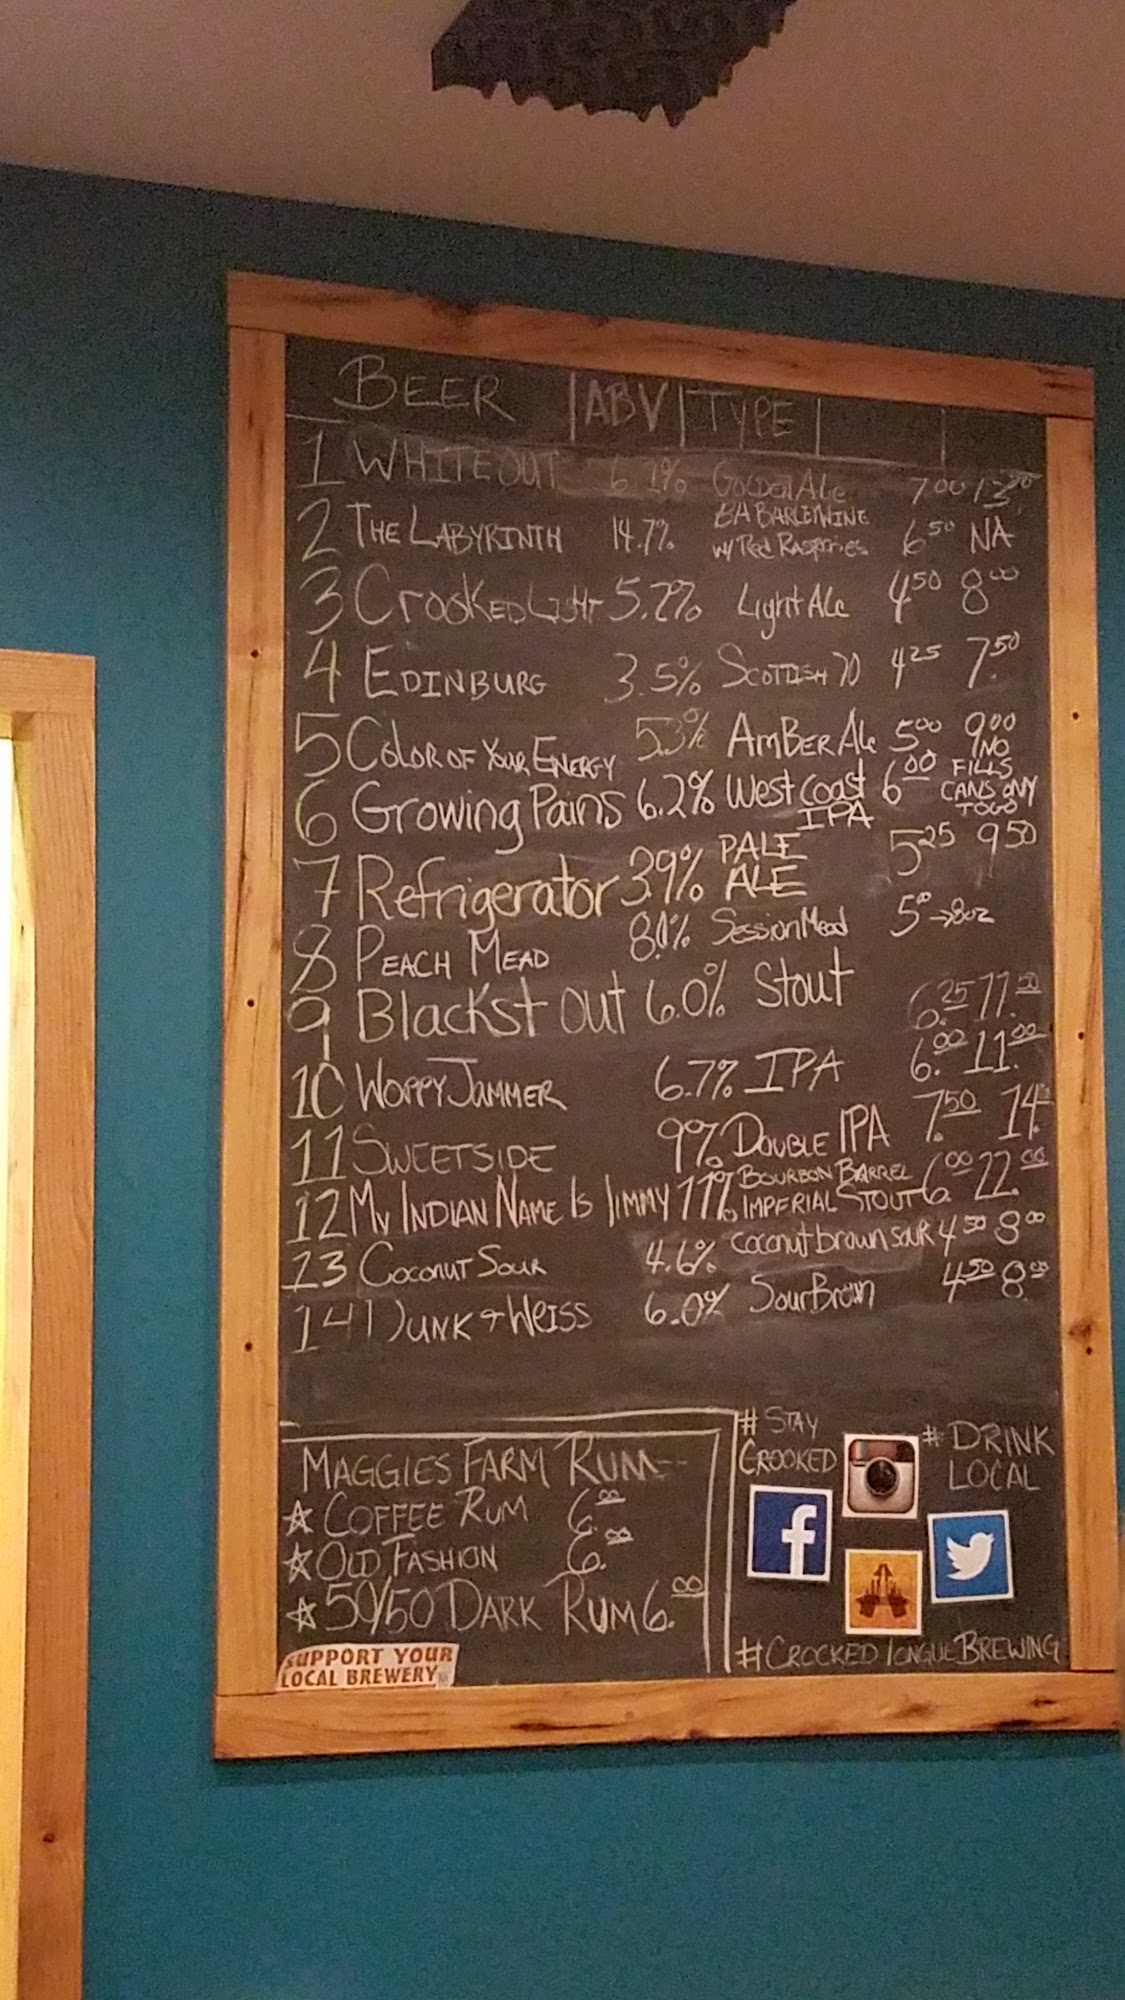 BEER | ABV | TYPE |
1 WHITEOUT 6.1% GOLDEN ALE 7.00
2 THE LABYRINTH 14.7% BA BARLEYWINE w/ Red Raspberries 6.50 NA
3 CROOKED LIGHT 5.2% Light Ale 4.50 8.00
4 EDINBURG 3.5% SCOTTISH 70 4.25 7.50
5 COLOR OF YOUR ENERGY 5.3% AMBER Ale 5.00 9.00
6 Growing Pains 6.2% West coast IPA 6.00 NO FILLS CANS ONLY TOGO
7 Refrigerator 3.9% PALE ALE 5.25 9.50
8 PEACH MEAD 8.0% Session Mead 5.00 → 8oz
9 Blackst out 6.0% Stout 6.25 11.50
10 WOPPY JAMMER 6.7% IPA 6.00 11.00
11 SWEETSIDE 9% DOUBLE IPA 7.50 14.00
12 MY INDIAN NAME IS JIMMY 11% BOURBON BARREL IMPERIAL STOUT 6.00 22.00
13 COCONUT SOUR 4.6% coconut brown SOUR 4.50 8.00
14 DUNK & WEISS 6.0% SOUR BROWN 4.50 8.00
MAGGIES FARM RUM
☆ COFFEE RUM 6.00
☆ OLD FASHION 6.00
☆ 50/50 DARK RUM 6.00
SUPPORT YOUR
LOCAL BREWERY
# STAY
CROOKED
# DRINK
LOCAL
f
#CROOKED TONGUE BREWING